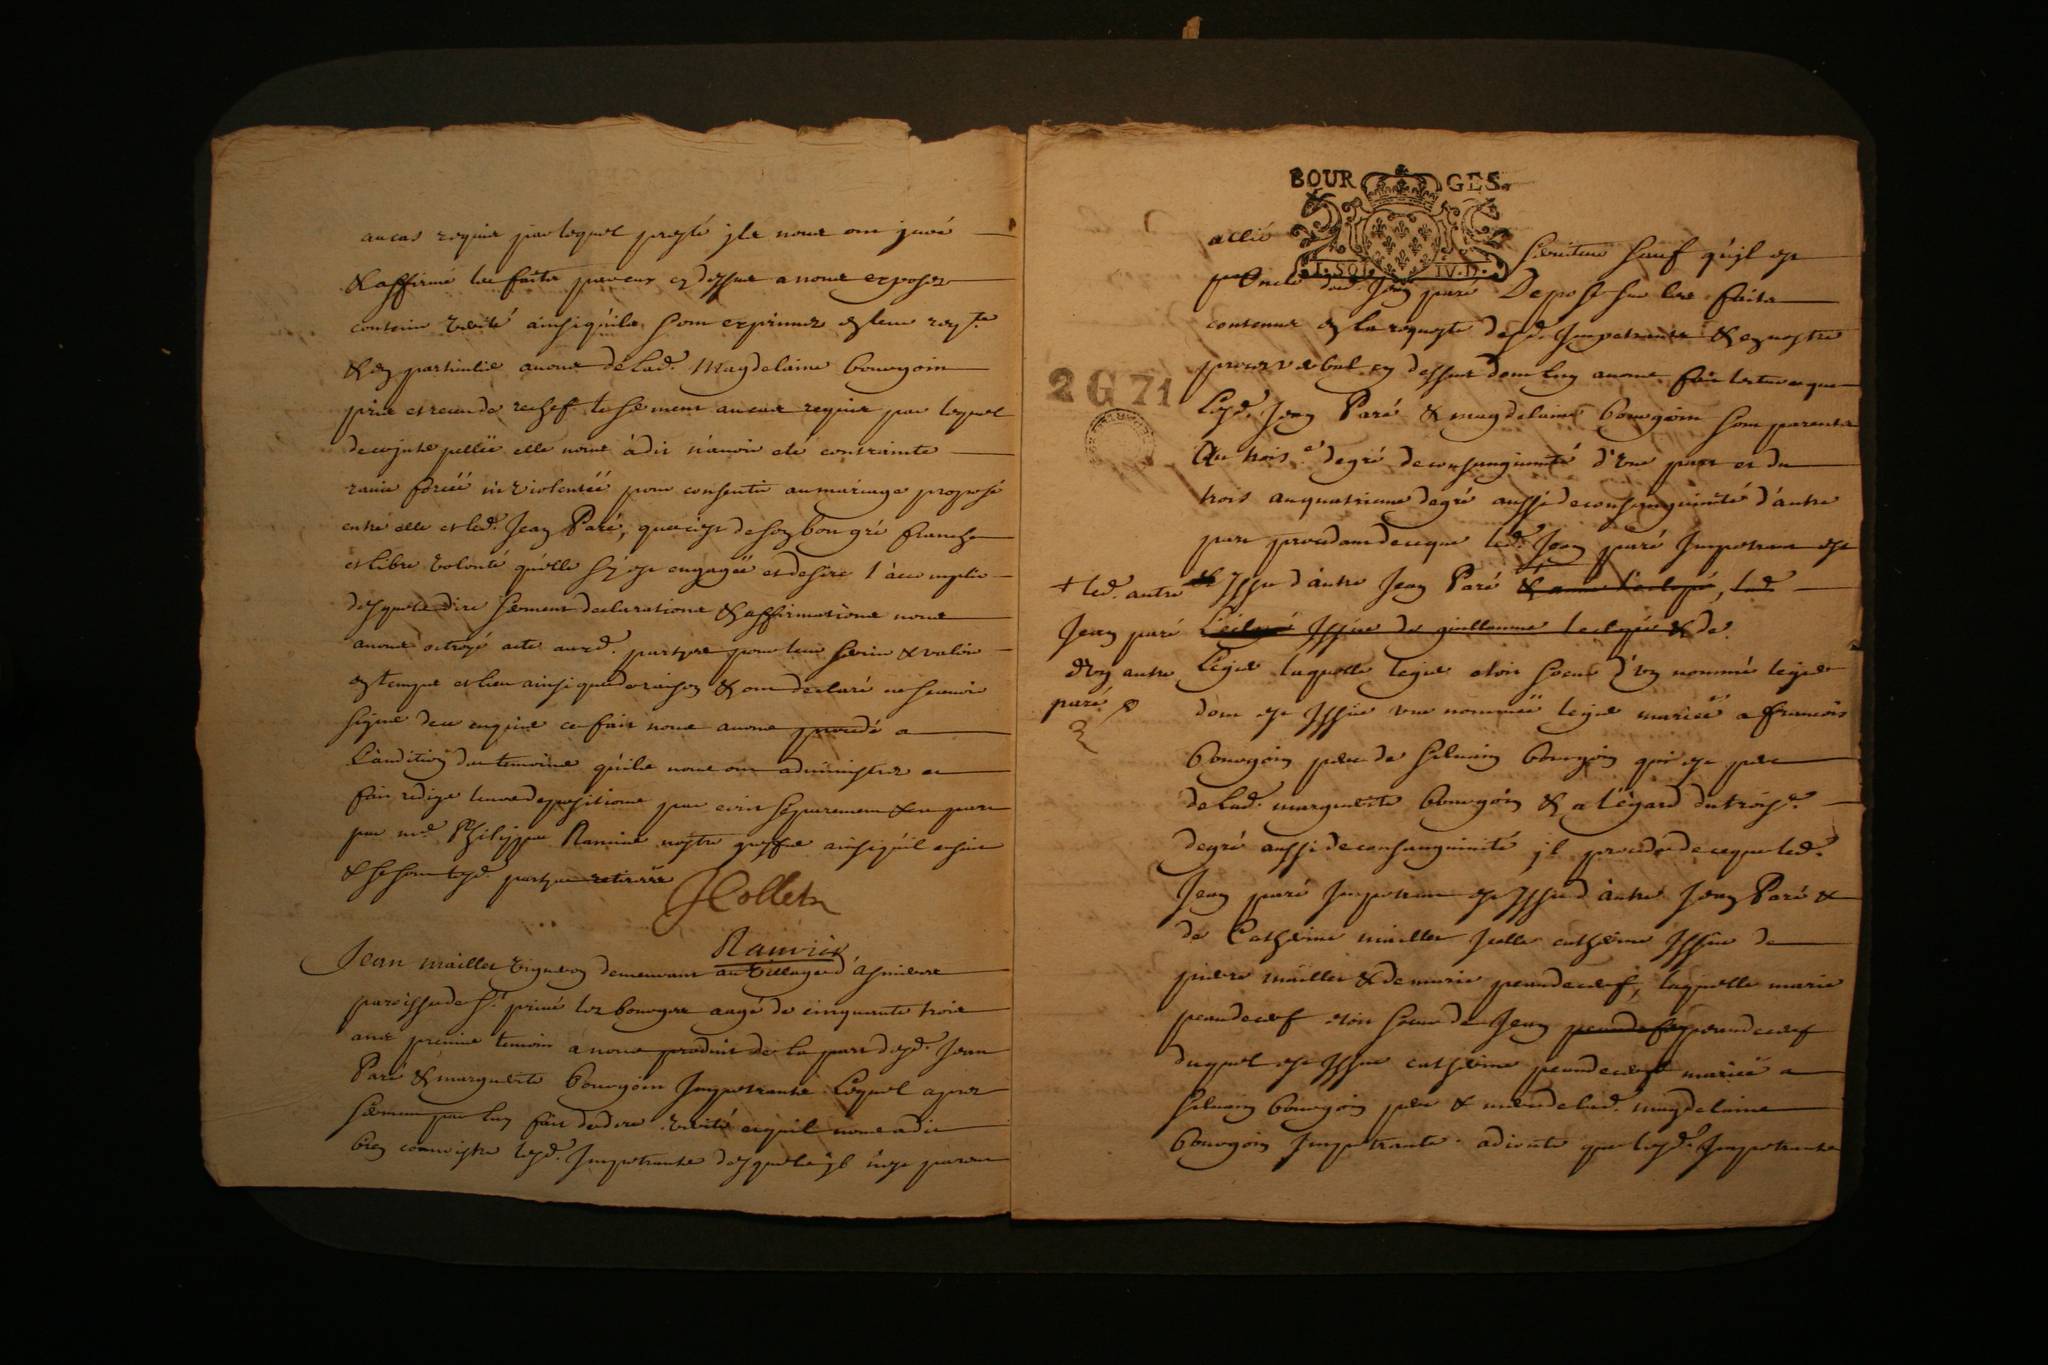 au cas requis par lequel presté ils nous ont juré
& affirmé les faits par eux cy dessus a nous exposez
contenir verité ainsi qu'ils sont exprimez en leur req.te
& en particulier avons de lad. Magdelaine bourgoin
pris et receu de rechef le serment au cas requis par lequel
de ce jnterpellée elle nous à dit n'avoir eté contrainte
ravie forcéé ni violentéé pour consentir au mariage proposé
entre elle et led. Jean Paré, que c'est de son bon gré franche
et libre volonté qu'elle s'y est engagéé et desire l'accomplir
desquels dire serment declarations & affirmations nous
avons octroyé acte ausd. partyes pour leur servir & valoir
en temps et lieu ainsi que de raison & ont declaré ne scavoir
signer de ce enquis ce fait nous avons procedé a
l'audition des temoins qu'ils nous ont administrez et
fait rediger leurs depositions par ecrit séparement & a part
par m.e Philippe Ranvier nostre greffier ainsi qu'il ensuit
& se sont lesd. partyes retirées
JCollet
Ranvier
Jean mailler vigneron demeurant au village d'asnieres
paroisse de S.t privé lez bourges aagé de cinquante trois
ans premier temoin a nous produit de la part desd. Jean
Paré & marguerite bourgoin Jmpetrants lequel apres
serment par luy fait de dire verité et qu'il nous a dit
bien connoistre lesd. Jmpetrants desquels il n'est parent
BOURGES.
1. SOL. IV. D.
allié serviteur sauf qu'il est
oncle dud. Jean paré Depose sur les faits
contenus en la requeste desd. Jmpetrants & en nostre
procez verbal cy dessus dont luy avons fait lecture que
2 G 71
lesd. Jean Paré & magdelaine bourgoin sont parents
Au trois.e degré de consanguinité d'une part et du
trois au quatrieme degré aussi de consanguinité d'autre
part procedant de ce que led. Jean paré Jmpetrant est
issu d'autre Jean Paré
+ led. autre
Jean paré
d'un autre
paré
issüe de guillaume & de
legie laquelle legie etoit soeur d'un nommé legie
dont est issüe une nomméé legie mariéé a francois
bourgoin pere de silvain bourgoin qui est pere
de lad. marguerite bourgoin & a l'égard du trois.e
degré aussi de consanguinité il procede de ce que led.
Jean paré Jmpetrant est issu d'autre Jean Paré &
de Catherine mailler icelle catherine issüe de
pierre mailler & de marie peaudecerf, laquelle marie
peaudecerf etoit soeur de Jean peaudecerf
duquel est issue catherine peaudecerf mariéé a
silvain bourgoin pere & mere de lad. magdelaine
bourgoin Jmpetrante. adjoute que lesd. Jmpetrants